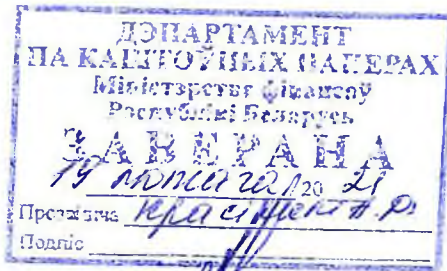 ДЭПАРТАМЕНТ
ПА КАШТОЎНЫХ ПАПЕРАХ
Міністэрства фінансаў
Рэспублікі Беларусь
ЗАВЕРАНА
19 лютага 20 21
Прозвішча
Подпіс